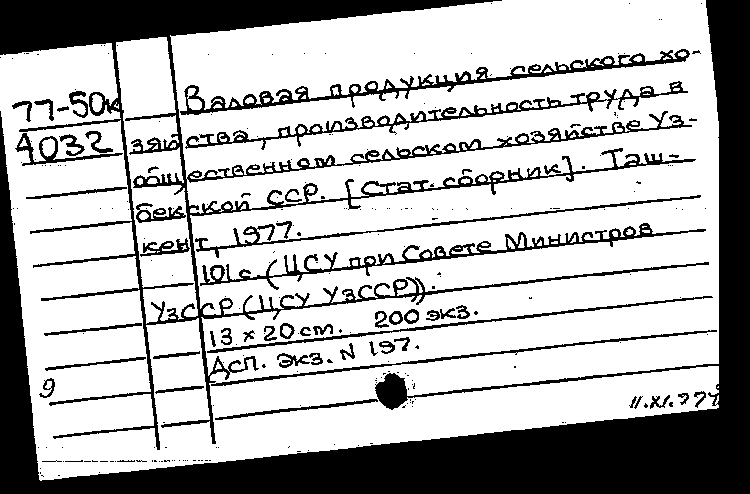 77-50к
4032
Валовая продукция сельского хо-
зяйства, производительность труда в
общественном сельском хозяйстве Уз-
бекской ССР. [Стат. сборник]. Таш-
кент, 1977.
101 с. (ЦСУ при Совете Министров
УзССР (ЦСУ УзССР)).
13 x 20 cm. 200 экз.
Дсп. Экз. N 197.
9
11.XI.77г